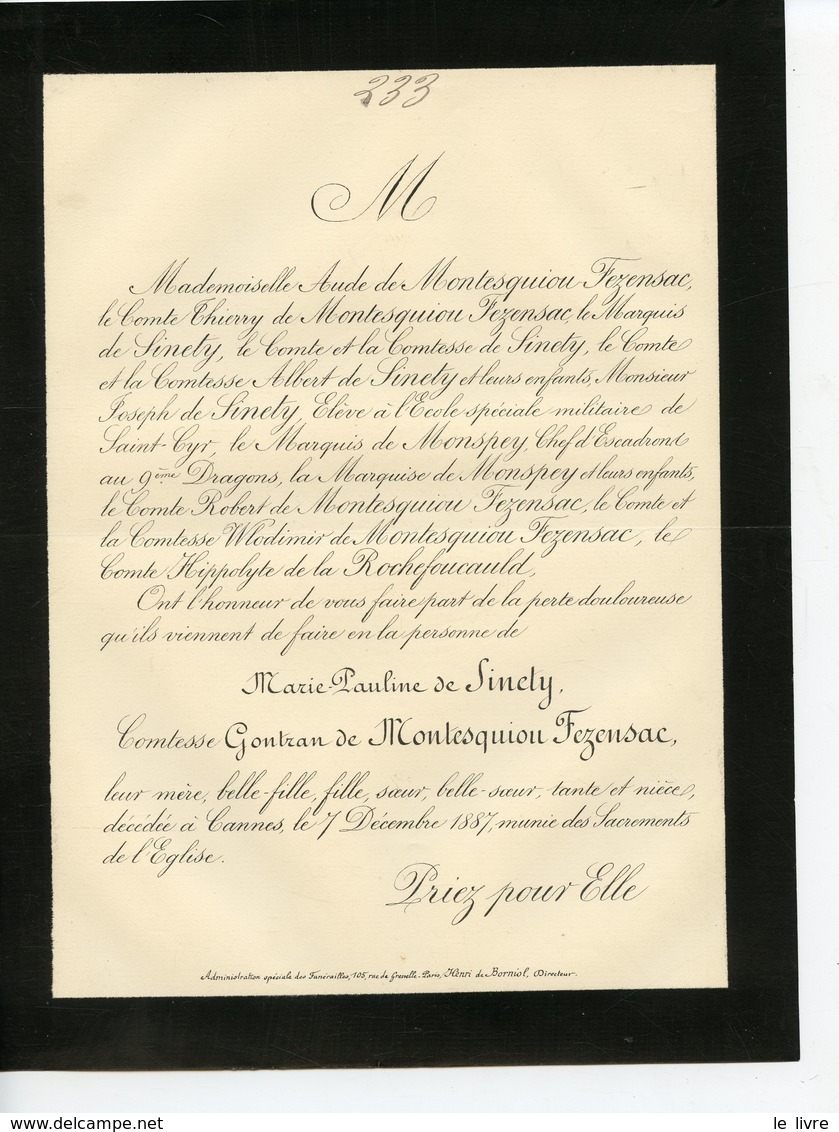 233
M
Mademoiselle Aude de Montesquiou Fezensac,
le Comte Thierry de Montesquiou Fezensac, le Marquis
de Sinety, le Comte et la Comtesse de Sinety, le Comte
et la Comtesse Albert de Sinety et leurs enfants, Monsieur
Joseph de Sinety, Elève à l'Ecole spéciale militaire de
Saint-Cyr, le Marquis de Monspey, Chef d'Escadrons
au 9ème Dragons, la Marquise de Monspey et leurs enfants,
le Comte Robert de Montesquiou Fezensac, le Comte et
la Comtesse Wlodimir de Montesquiou Fezensac, le
Comte Hippolyte de la Rochefoucauld,
Ont l'honneur de vous faire part de la perte douloureuse
qu'ils viennent de faire en la personne de
Marie-Pauline de Sinety,
Comtesse Gontran de Montesquiou Fezensac,
leur mère, belle-fille, fille, sœur, belle-sœur, tante et nièce,
décédée à Cannes, le 7 Décembre 1887, munie des Sacrements
de l'Eglise.
Priez pour Elle
Administration spéciale des Funérailles, 105, rue de Grenelle-Paris, Henri de Borniol, Directeur.
le livre